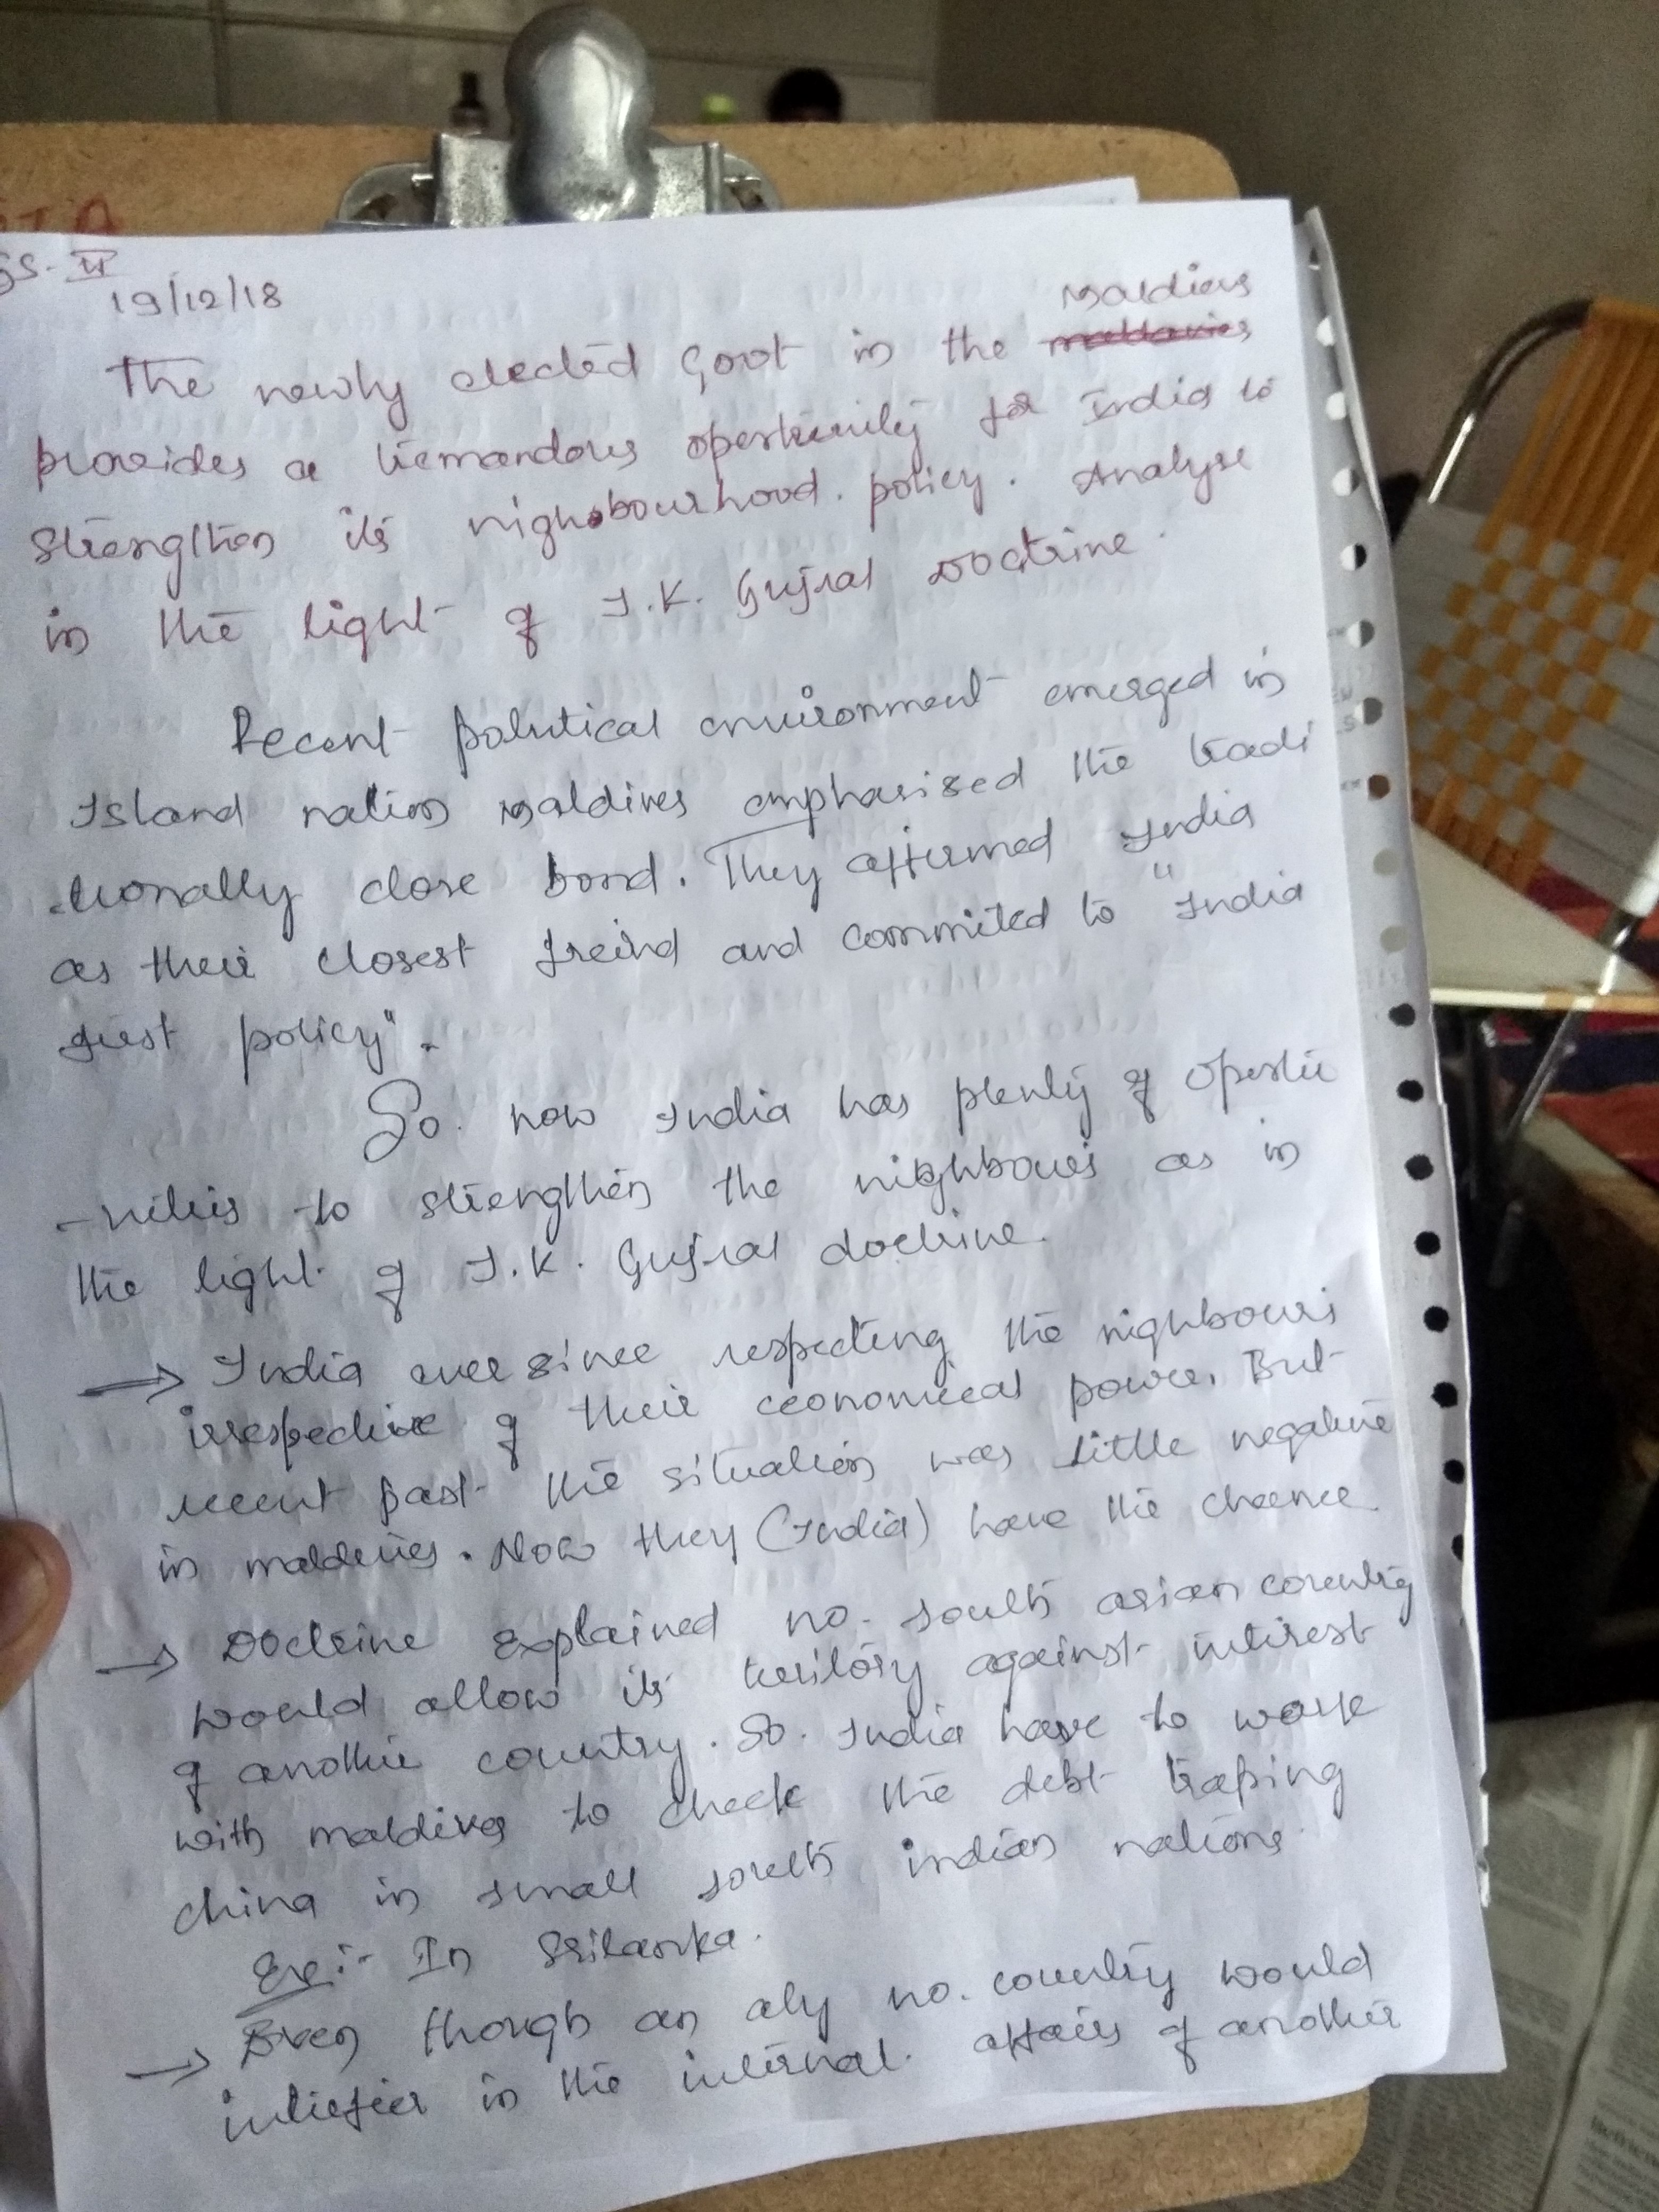 GS-II
19/12/18
Maldives
The newly elected Govt in the
provides a tremandous opertunity for India to
strengthen its nighobourhood. policy. Analyse
in the light of I.K. Gujral Doctrine.
Recent political environment emerged in
Island nation Maldives emphasised the tradi
-tionally close bond. They affirmed India
as their closest freind and commited to "India
first policy".
So. now India has plenty of opertu
-nities to strengthen the nighbours as in
the light of I.K. Gujral doctrine.
→ India ever since respecting the nighbours
irrespective of their economical power. But
recent past the situation was little negative
in maldives. Now they (India) have the chance
→ Doctrine explained no. south asian country
would allow its teritory against interest
of another country. So. India have to work
with maldives to check the debt traping
china in small south indian nations.
Exe:- In Srilanka.
→ Even though an aly no. country would
interfier in the internal. affairs of another